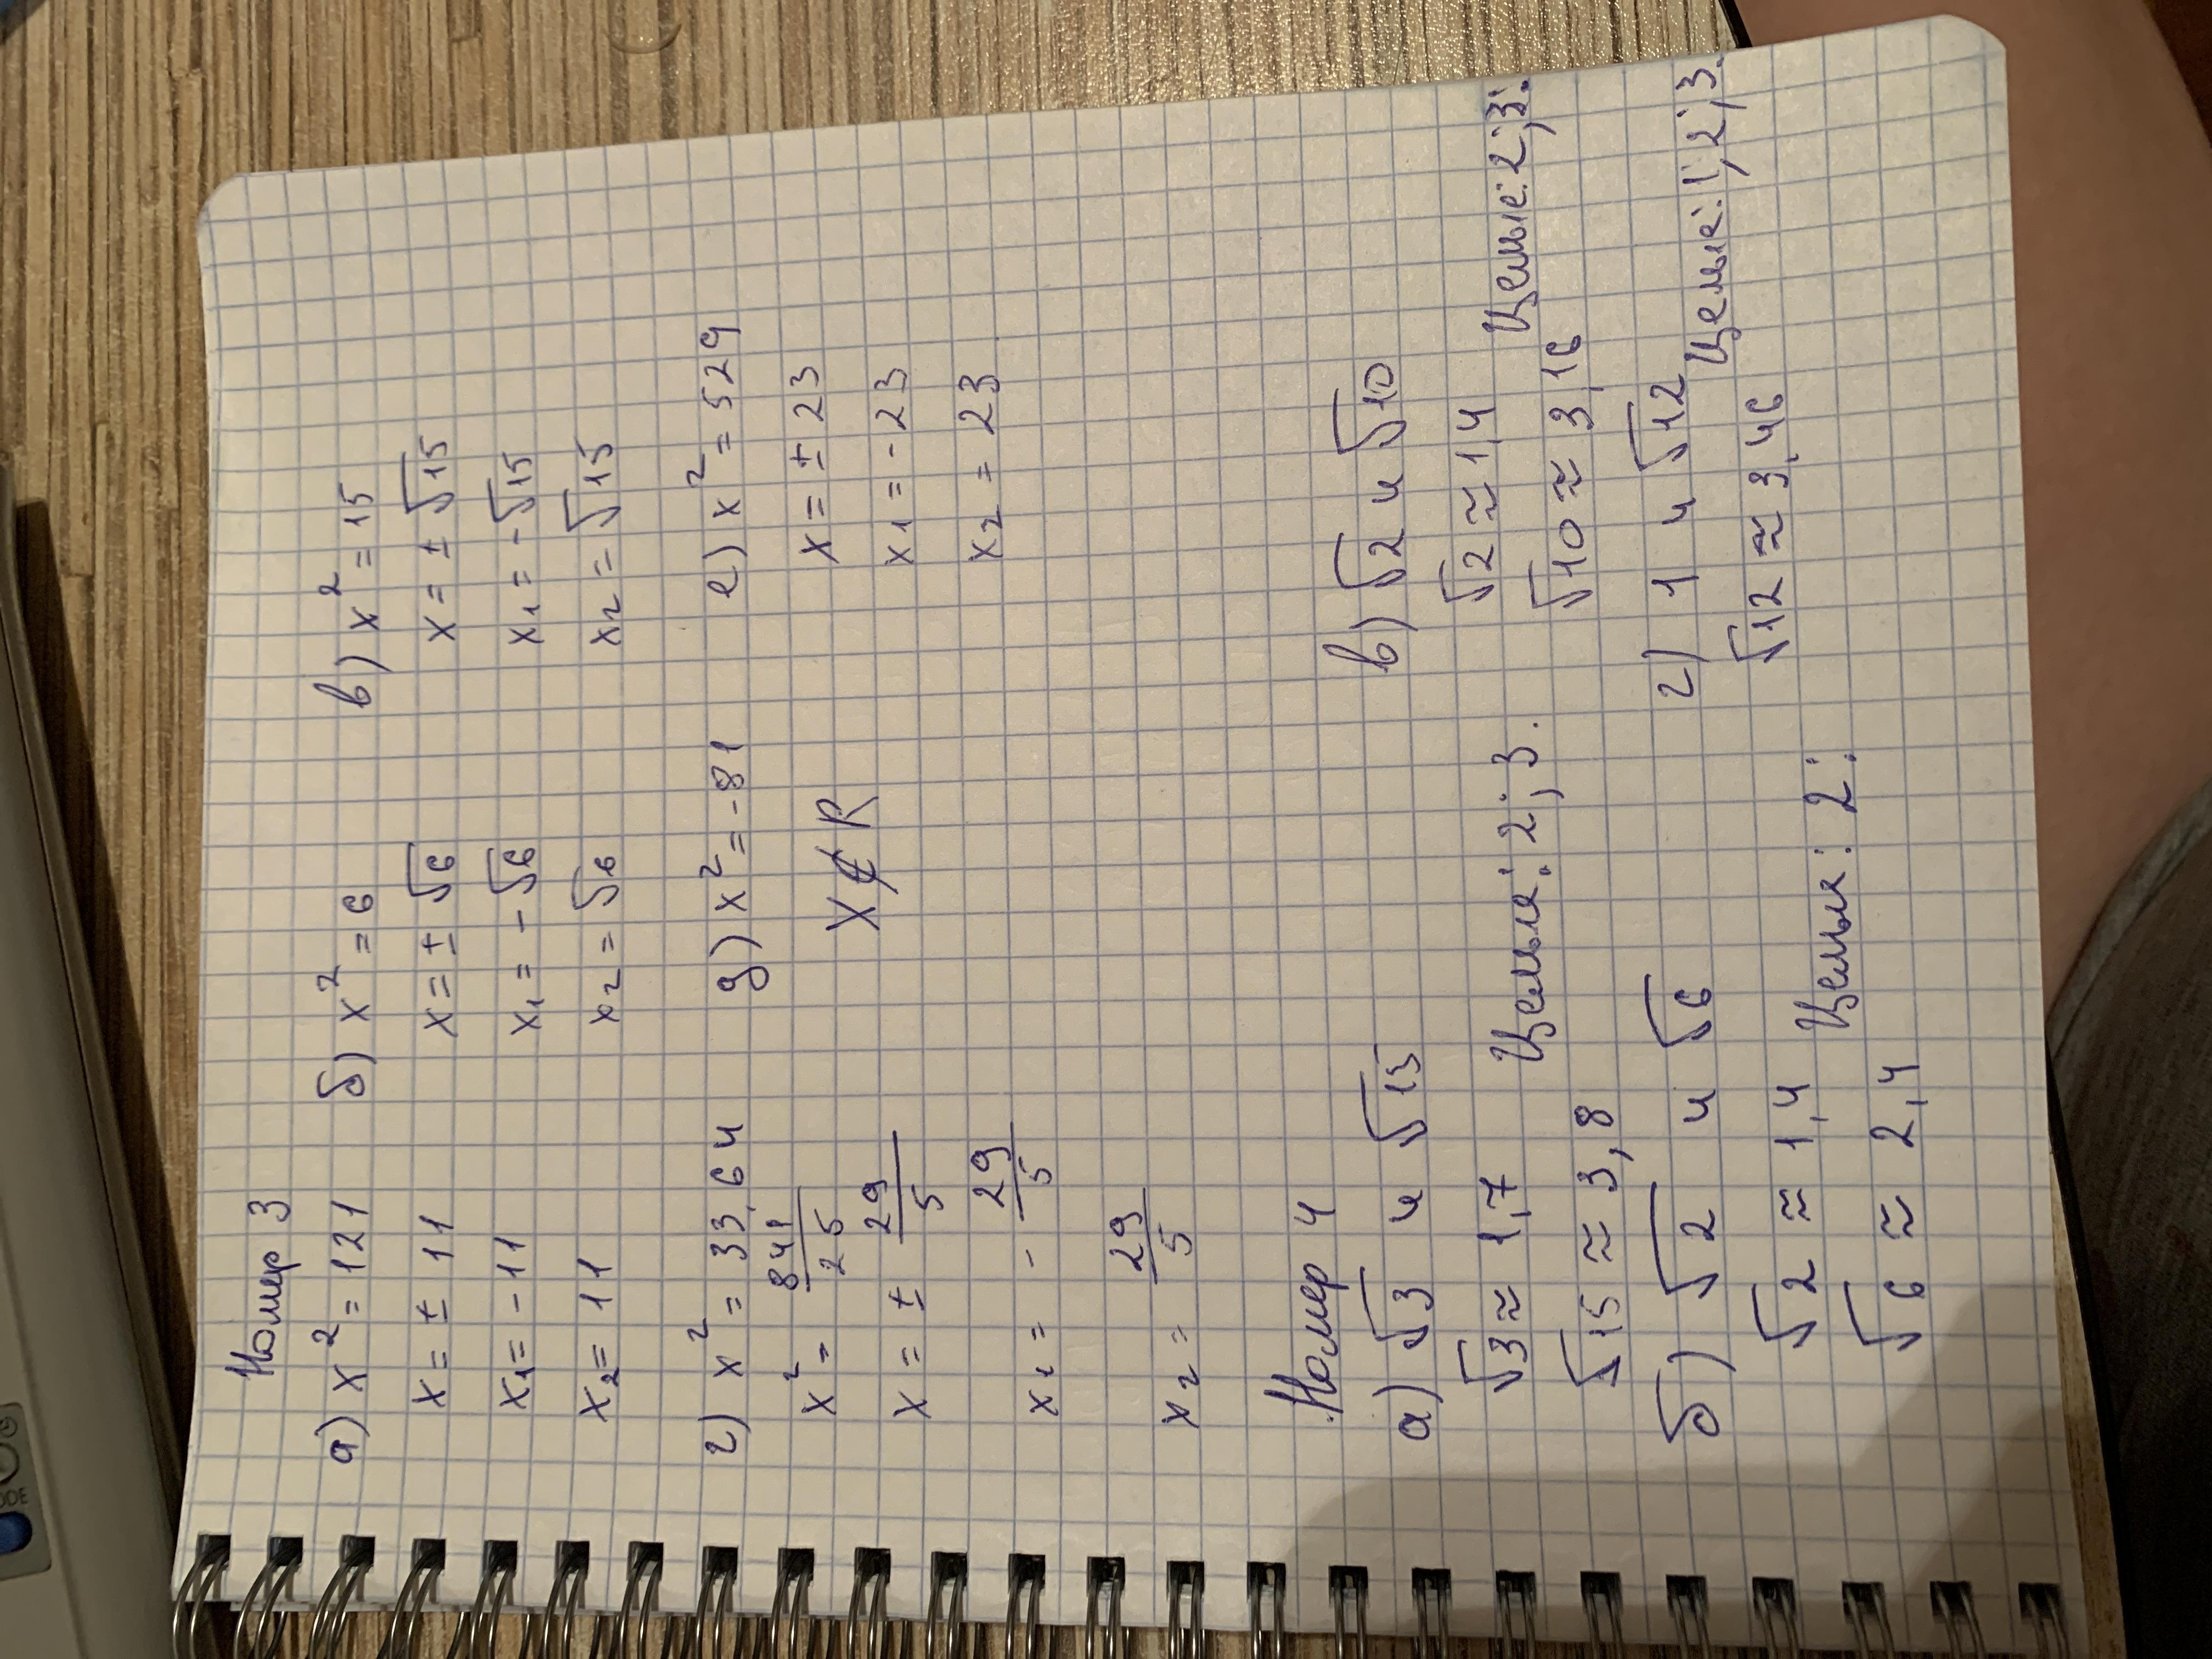 Номер 3
а) x² = 121
x = ± 11
x₁ = -11
x₂ = 11
б) x² = 6
x = ± √6
x₁ = - √6
x₂ = √6
в) x² = 15
x = ± √15
x₁ = - √15
x₂ = √15
г) x² = 33,64
x² = 841/25
x = ± 29/5
x₁ = - 29/5
x₂ = 29/5
д) x² = -81
x ∉ R
е) x² = 529
x = ± 23
x₁ = - 23
x₂ = 23
Номер 4
а) √3 и √15
√3 ≈ 1,7
√15 ≈ 3,8
Целые: 2; 3.
б) √2 и √6
√2 ≈ 1,4
√6 ≈ 2,4
Целые: 2.
в) √2 и √10
√2 ≈ 1,4
√10 ≈ 3,16
Целые: 2; 3.
г) 1 и √12
√12 ≈ 3,46
Целые: 1; 2; 3.